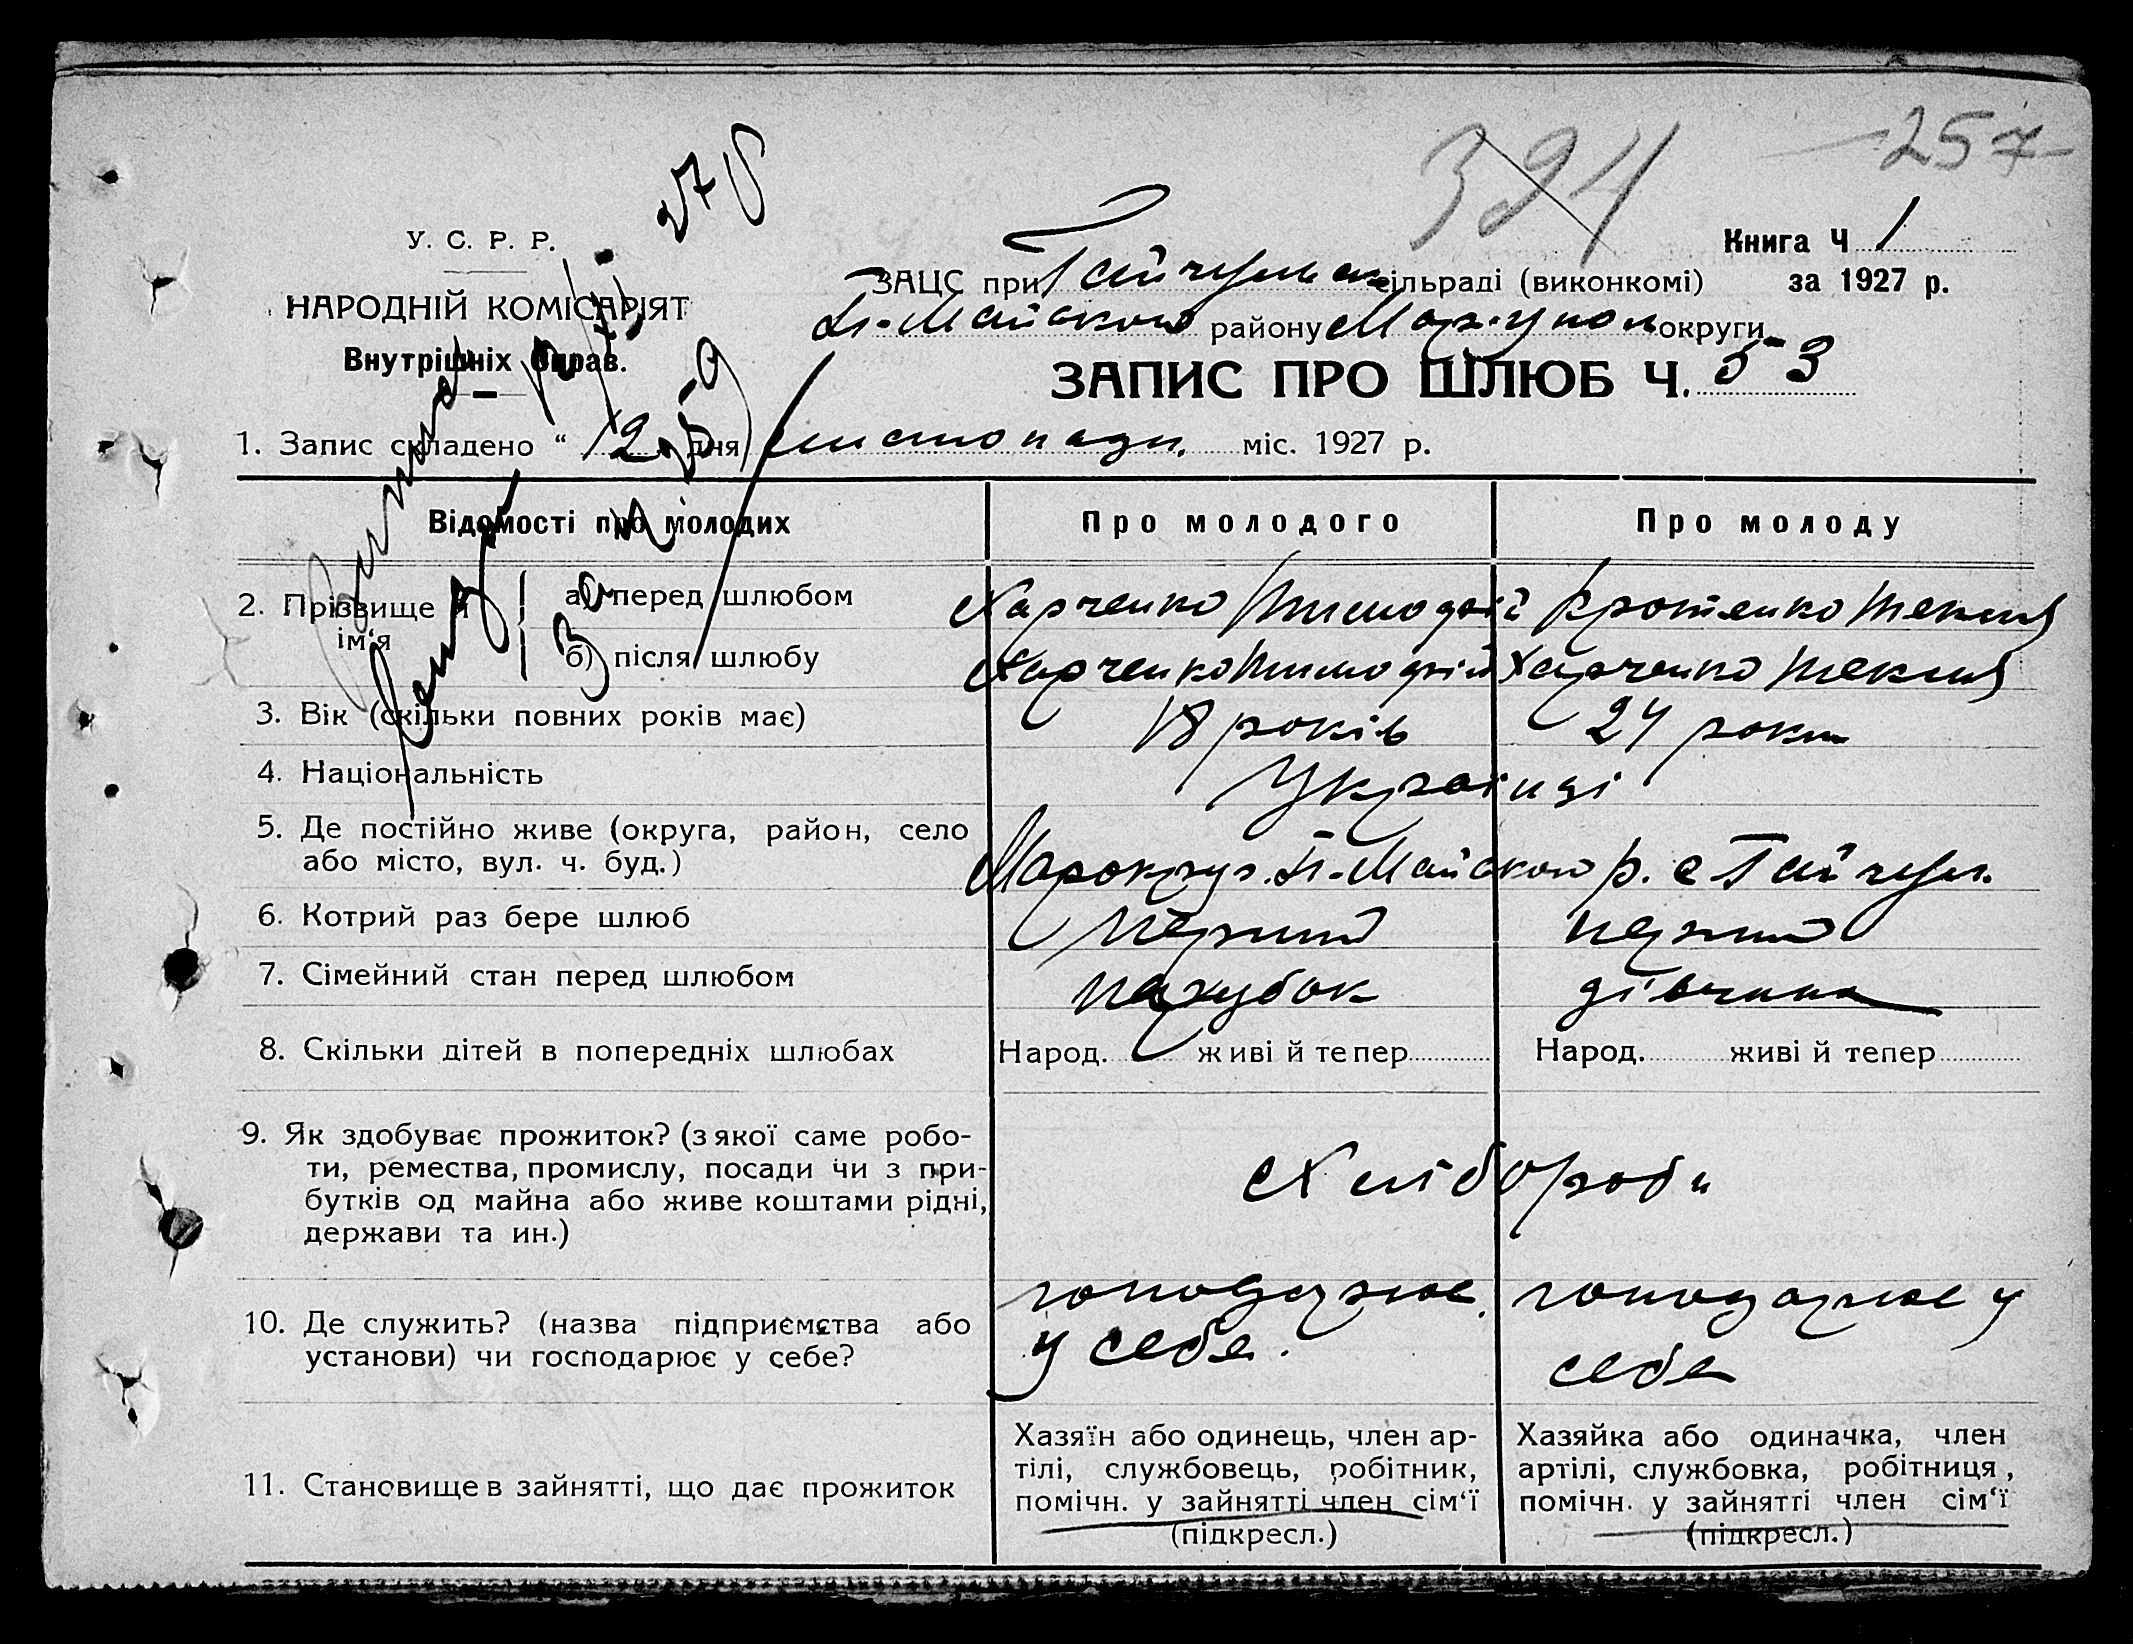 394
257
У. С. Р. Р.
НАРОДНІЙ КОМІСАРІЯТ
Внутрішніх Справ.
Книга Ч 1
ЗАЦС при Гайчульск сільраді (виконкомі) за 1927 р.
району Маріупол округи
ЗАПИС ПРО ШЛЮБ Ч. 53
1. Запис складено “ 12 дня листопада міс. 1927 р.
Відомості про молодих Про молодого Про молоду
2. Прізвище й ім‘я
а) перед шлюбом Харченко Тимофій Кротенко Текля
б) після шлюбу Харченко Тимофій Харченко Текля
3. Вік (скільки повних років має) 18 років 24 роки
4. Національність Українці
5. Де постійно живе (округа, район, село
або місто, вул. ч. буд.) Марокруг. П-Майского р. с Гайчул.
6. Котрий раз бере шлюб перший перший
7. Сімейний стан перед шлюбом парубок дівчина
8. Скільки дітей в попередніх шлюбах Народ. живі й тепер Народ. живі й тепер
9. Як здобуває прожиток? (з якої саме робо-
ти, ремества, промислу, посади чи з при-
бутків од майна або живе коштами рідні,
держави та ин.)
Хлібороби
10. Де служить? (назва підприємства або
установи) чи господарює у себе?
господарює
у себе.
господарює у
себе
11. Становище в зайнятті, що дає прожиток
Хазяїн або одинець, член ар-
тілі, службовець, робітник,
помічн. у зайнятті член сім‘ї
(підкресл.)
Хазяйка або одиначка, член
артілі, службовка, робітниця,
помічн. у зайнятті член сім‘ї
(підкресл.)